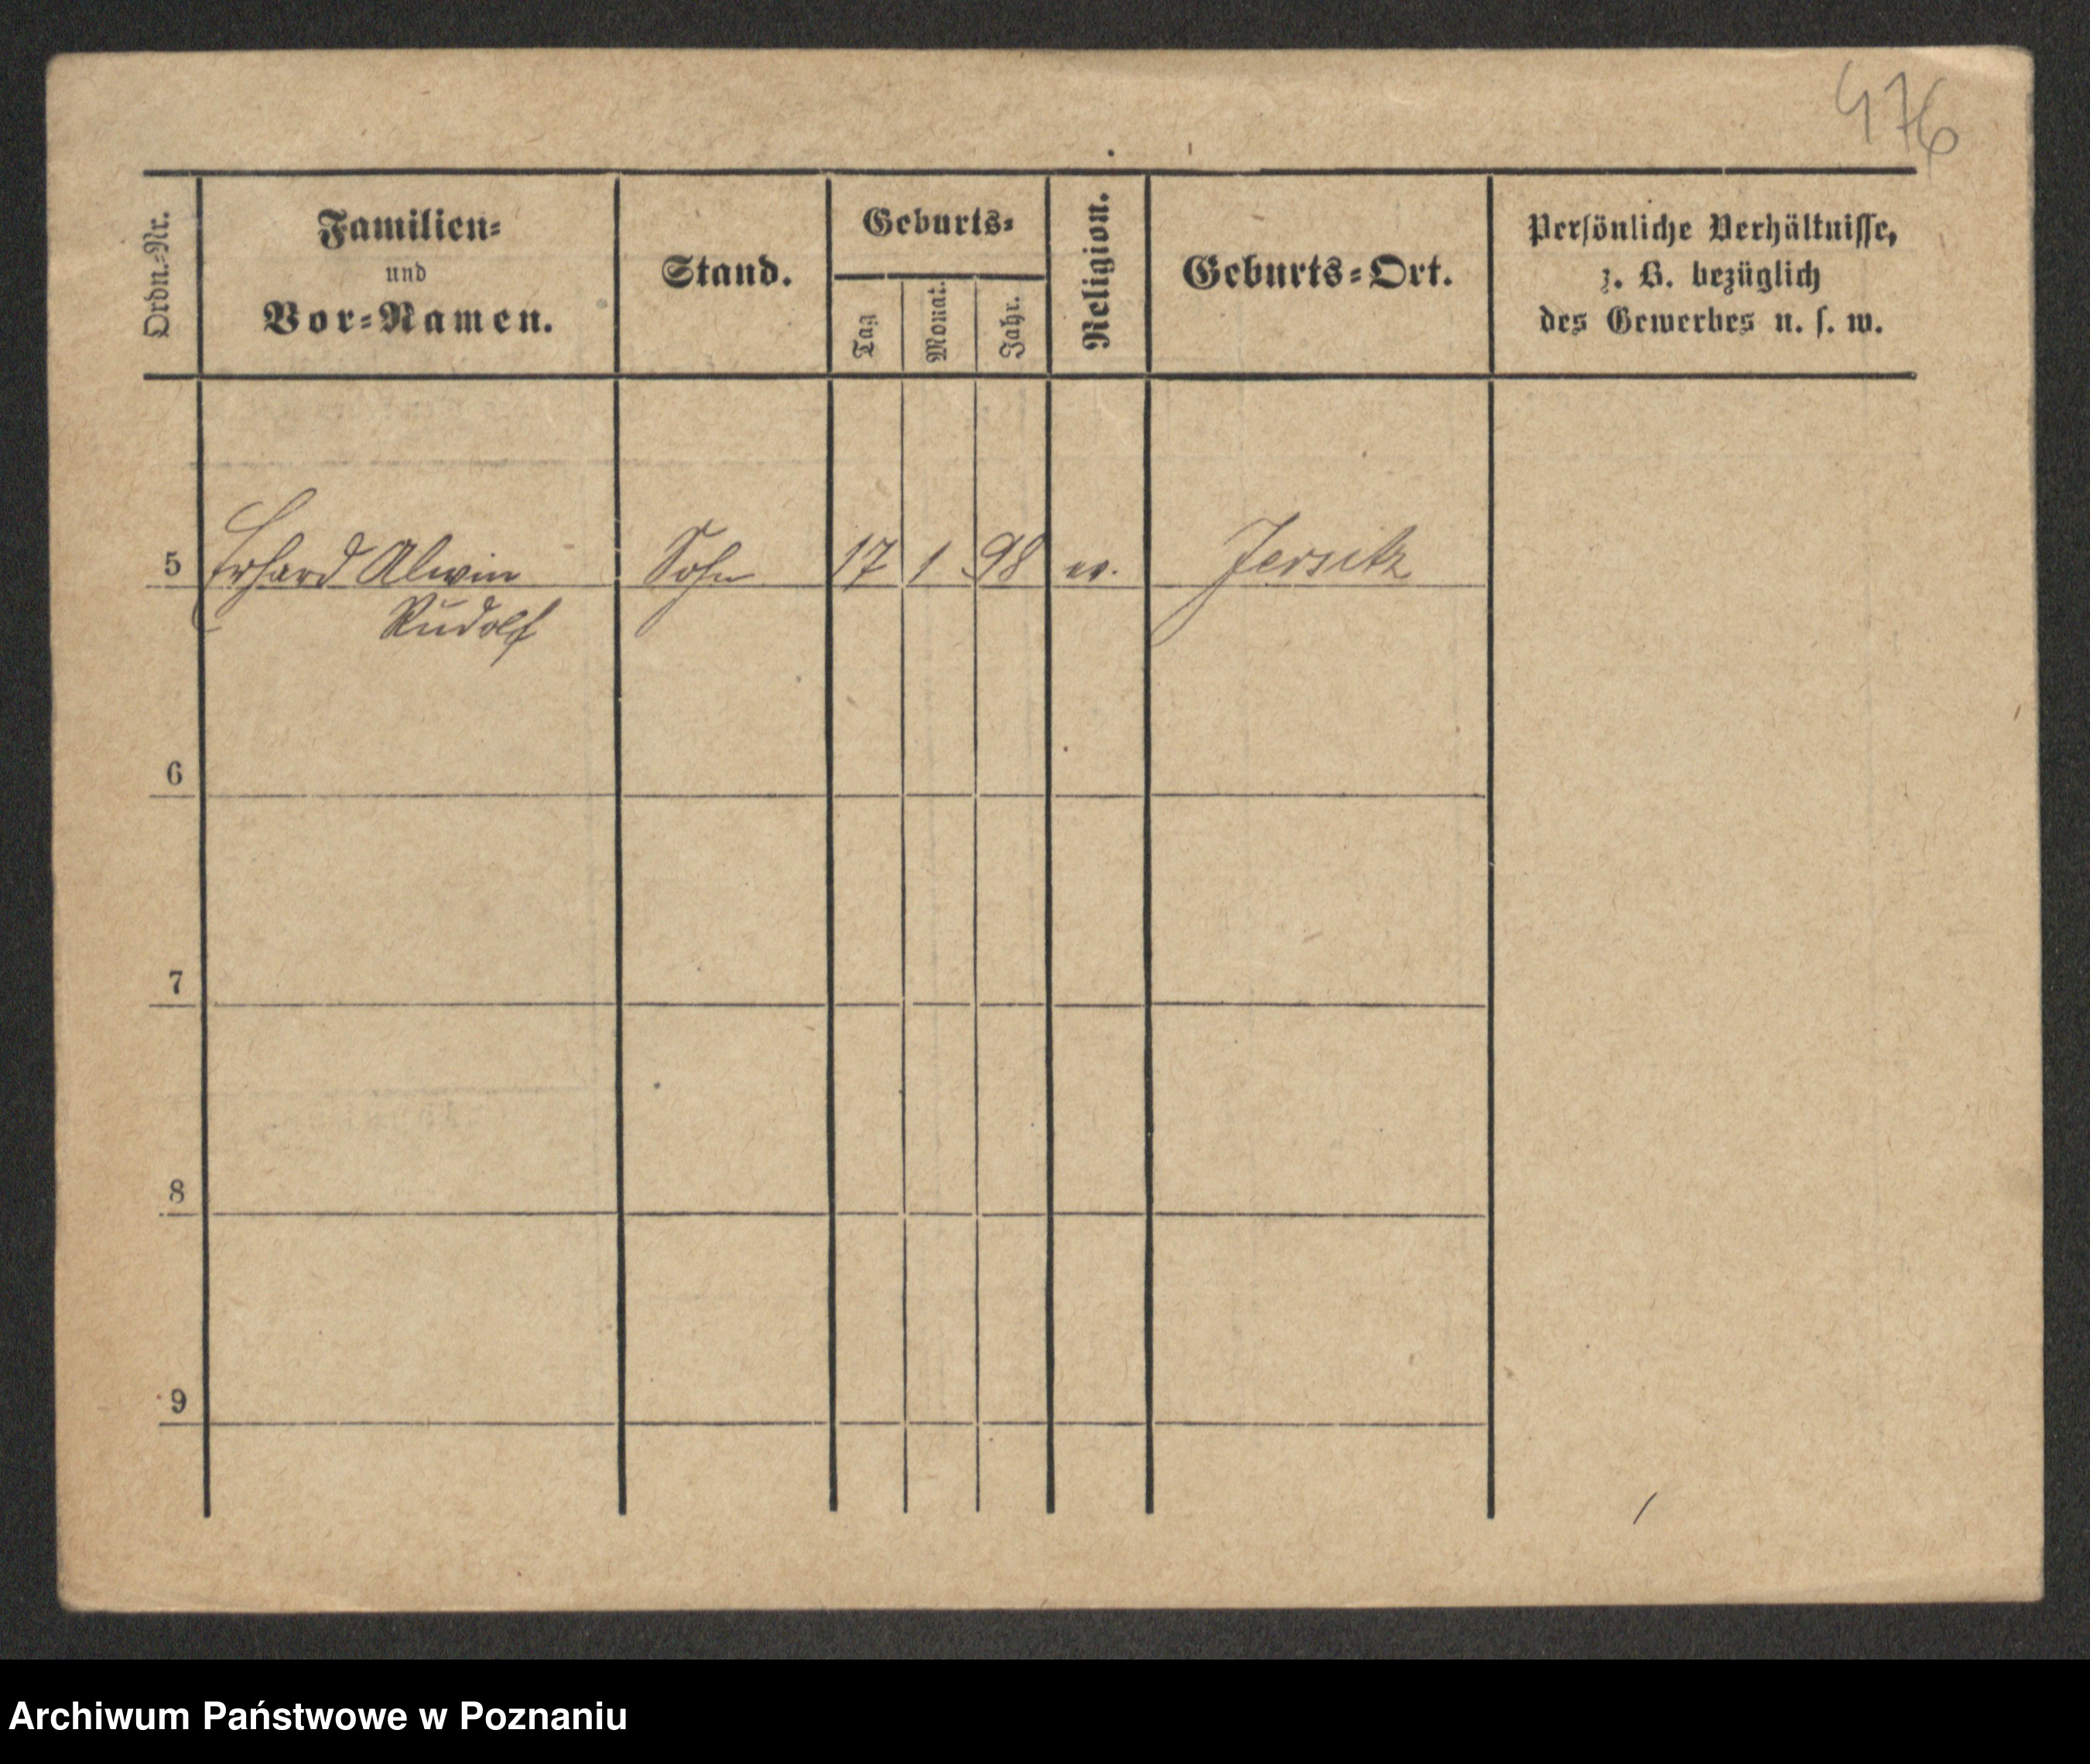 476
Ordn.-Nr.
Familien-
und
Vor-Namen.
Stand.
Geburts-
Tag
Monat.
Jahr.
Religion.
Geburts-Ort.
Persönliche Verhältnisse,
z. B. bezüglich
des Gewerbes u. s. w.
5 Erhard Alwin Sohn 17 1 98 ev. Jersitz
Rudolf
6
7
8
9
Archiwum Państwowe w Poznaniu